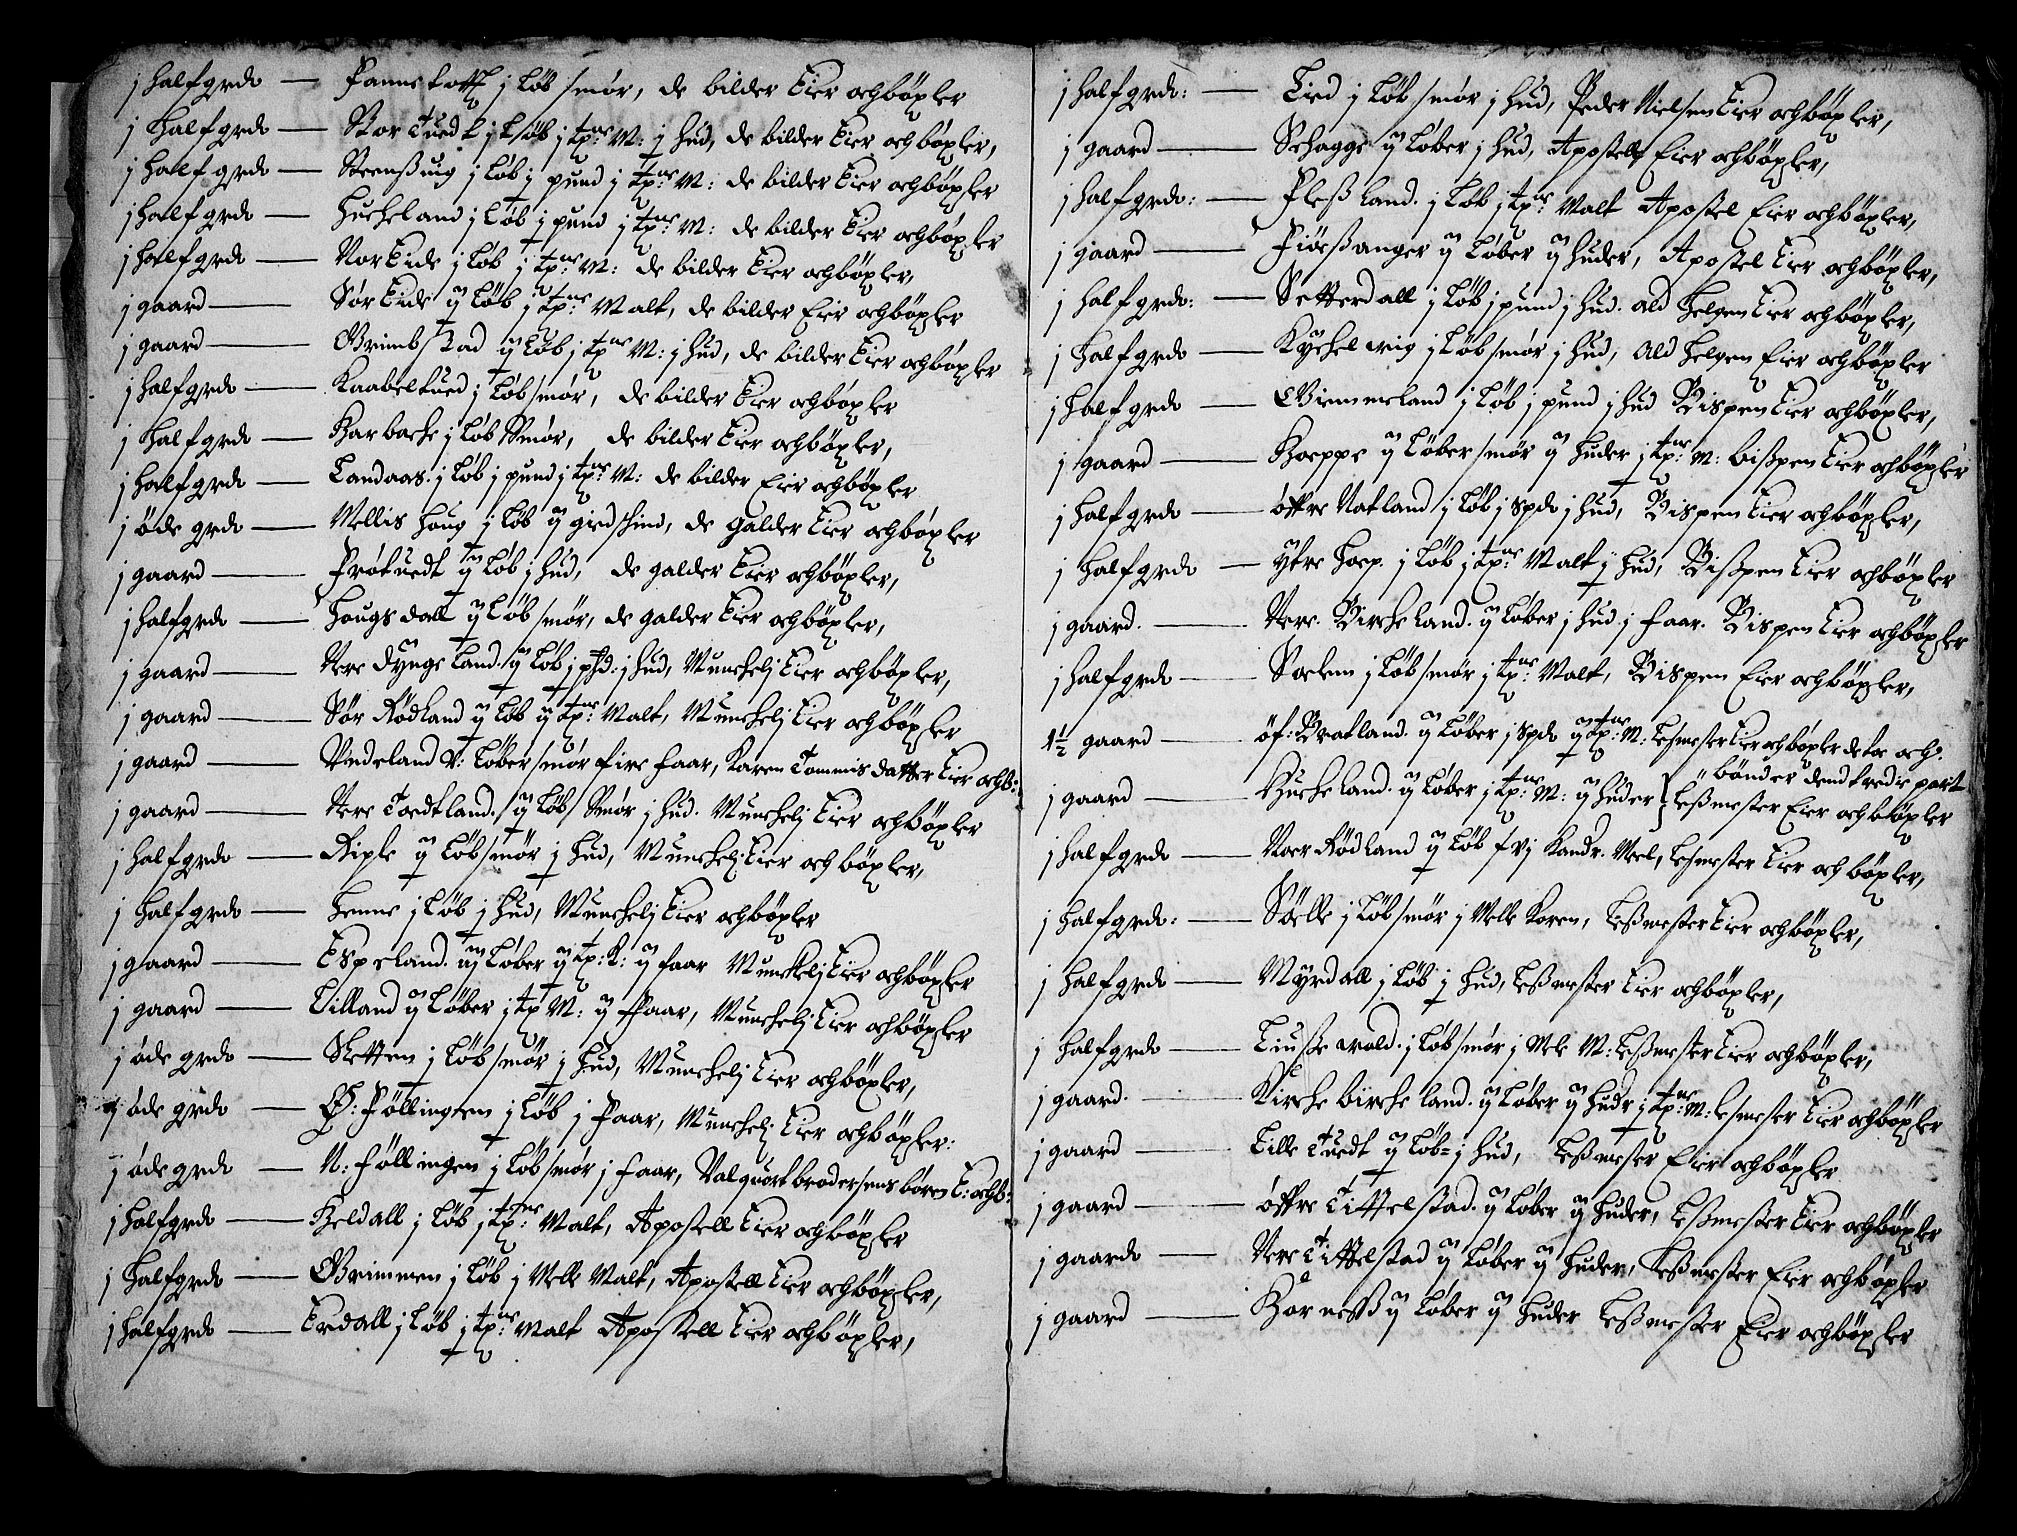 j halfgrdt — Pannetofft j Løb smør, de bilder Eier och bøxler
j halfgrdt — Stor Tuedt j Løb j tønne M: j hud, de bilder Eier och bøxler,
j halfgrdt — Steensuig j Løb j pund j tønne M: de bilder Eier och bøxler
j halfgrdt — Hucheland j Løb j pund j tønne M: de bilder Eier och bøxler
j halfgrdt — Nor Eide j Løb j tønne M: de bilder Eier och bøxler,
j gaard — Sør Eide ij Løb j tønne Malt, de bilder Eier och bøxler
j gaard — Grimbstad ij Løb j tønne M: j hud, de bilder Eier och bøxler
j halfgrdt — Kaabeltued j Løb smør, de bilder Eier och bøxler
j halfgrdt — Harbache j Løb Smør, de bilder Eier och bøxler,
j halfgrdt — Landaas j Løb j pund j tønne M: de bilder Eier och bøxler
j øde grdt — Mellis Houg j Løb ij giedschind, de galder Eier och bøxler
j gaard — Frøtuedt ij Løb j hud, de galder Eier och bøxler,
j halfgrdt — Hougsdall ij Løb smør, de galder Eier och bøxler,
j gaard — Nere Dyngeland ij Løb j pd: j hud, Munchelj Eier och bøxler,
j gaard — Sør Rødland ij Løb ij tønne Malt, Munchelj Eier och bøxler
j gaard — Vndeland V: Løber smør fire faar, Karen Tommis datter Eier och b:
j gaard — Nere Toedtland ij Løb Smør j hud. Munchelj Eier och bøxler
j halfgrdt — Riple ij Løb smør j hud, Munchelj Eier och bøxler,
j halfgrdt — Henne j Løb j hud, Munchelj Eier och bøxler
j gaard — Espeland iij Løber ij tp: K: ij faar Munchelj Eier och bøxler
j gaard — Lilland ij Løber j tp M: ij Faar, Munchelj Eier och bøxler
j øde grdt — Sletten j Løb smør j hud, Munchelj Eier och bøxler,
j øde grdt — Ø: Føllingen j Løb j Faar, Munchelj Eier och bøxler:
j øde grdt — N: Føllingen j Løb smør j faar, Valquort brodersens børen E: och b:
j halfgrdt — Heldall j Løb j tønne Malt, Apostell Eier och bøxler
j halfgrdt — Grimmen j Løb j Melle Malt, Apostell Eier och bøxler,
j halfgrdt — Erdall j Løb j tønne Malt Apostell Eier och bøxler,
j halfgrdt: — Lied j Løb smør j hud, Peder Nielsen Eier och bøxler,
j gaard — Schagge ij Løber j hud, Apostell Eier och bøxler,
j halfgrdt: — Flessland. j Løb j tønne Malt Apostel Eier och bøxler,
j gaard — Fiøssanger ij Løber ij huder, Apostel Eier och bøxler,
j halfgrdt: — Setterdall j Løb j pund j hud. Ald Helgen Eier och bøxler,
j halfgrdt — Kychelwig j Løb smør j hud, Ald Helgen Eier och bøxler
j halfgrdt — Giemmeland j Løb j pund j hud Bispen Eier och bøxler,
j gaard — Hoeppe ij Løber smør ij huder j tønne M: bispen Eier och bøxler
j halfgrdt — øffre Natland j Løb j spdt j hud, Bispen Eier och bøxler,
j halfgrdt — ytre Hoep. j Løb j tønne Malt j hud, Bispen Eier och bøxler
j gaard. — Nere. Bircheland. ij Løber j hud j faar. Bispen Eier och bøxler
j halfgrdt — Soelem j Løb smør j tønne Malt, Bispen Eier och bøxler,
1½ gaard — øf: Bratland. ij Løber j spdt ij tønne M: Lesmester Eier och bøxler de toe och
bønder dend tredie part
j gaard — Hucheland. ij Løber j tønne M: ij huder } Lessmester Eier och bøxler
j halfgrdt — Noer Rødland ij Løb Kandr. Meel, Lesmester Eier och bøxler,
j halfgrdt: — Sølle j Løb smør j Melle Koren, Lessmester Eier och bøxler,
j halfgrdt — Myrdall j Løb j hud, Lessmester Eier och bøxler,
j halfgrdt — Liussewold. j Løb smør j Mele M: Lessmester Eier och bøxler,
j gaard. — Kirche bircheland. ij Løber ij hudr j tønne M: Lesmester Eier och bøxler
j gaard — Lille Tuedt ij Løb= j hud, Lessmester Eier och bøxler
j gaard — øffre Tittelstad ij Løber ij huder, Lessmester Eier och bøxler
j gaardt — Nere Tittelstad ij Løber ij huder, Lessmester Eier och bøxler
j gaard — Horness ij Løber ij huder Lessmester Eier och bøxler